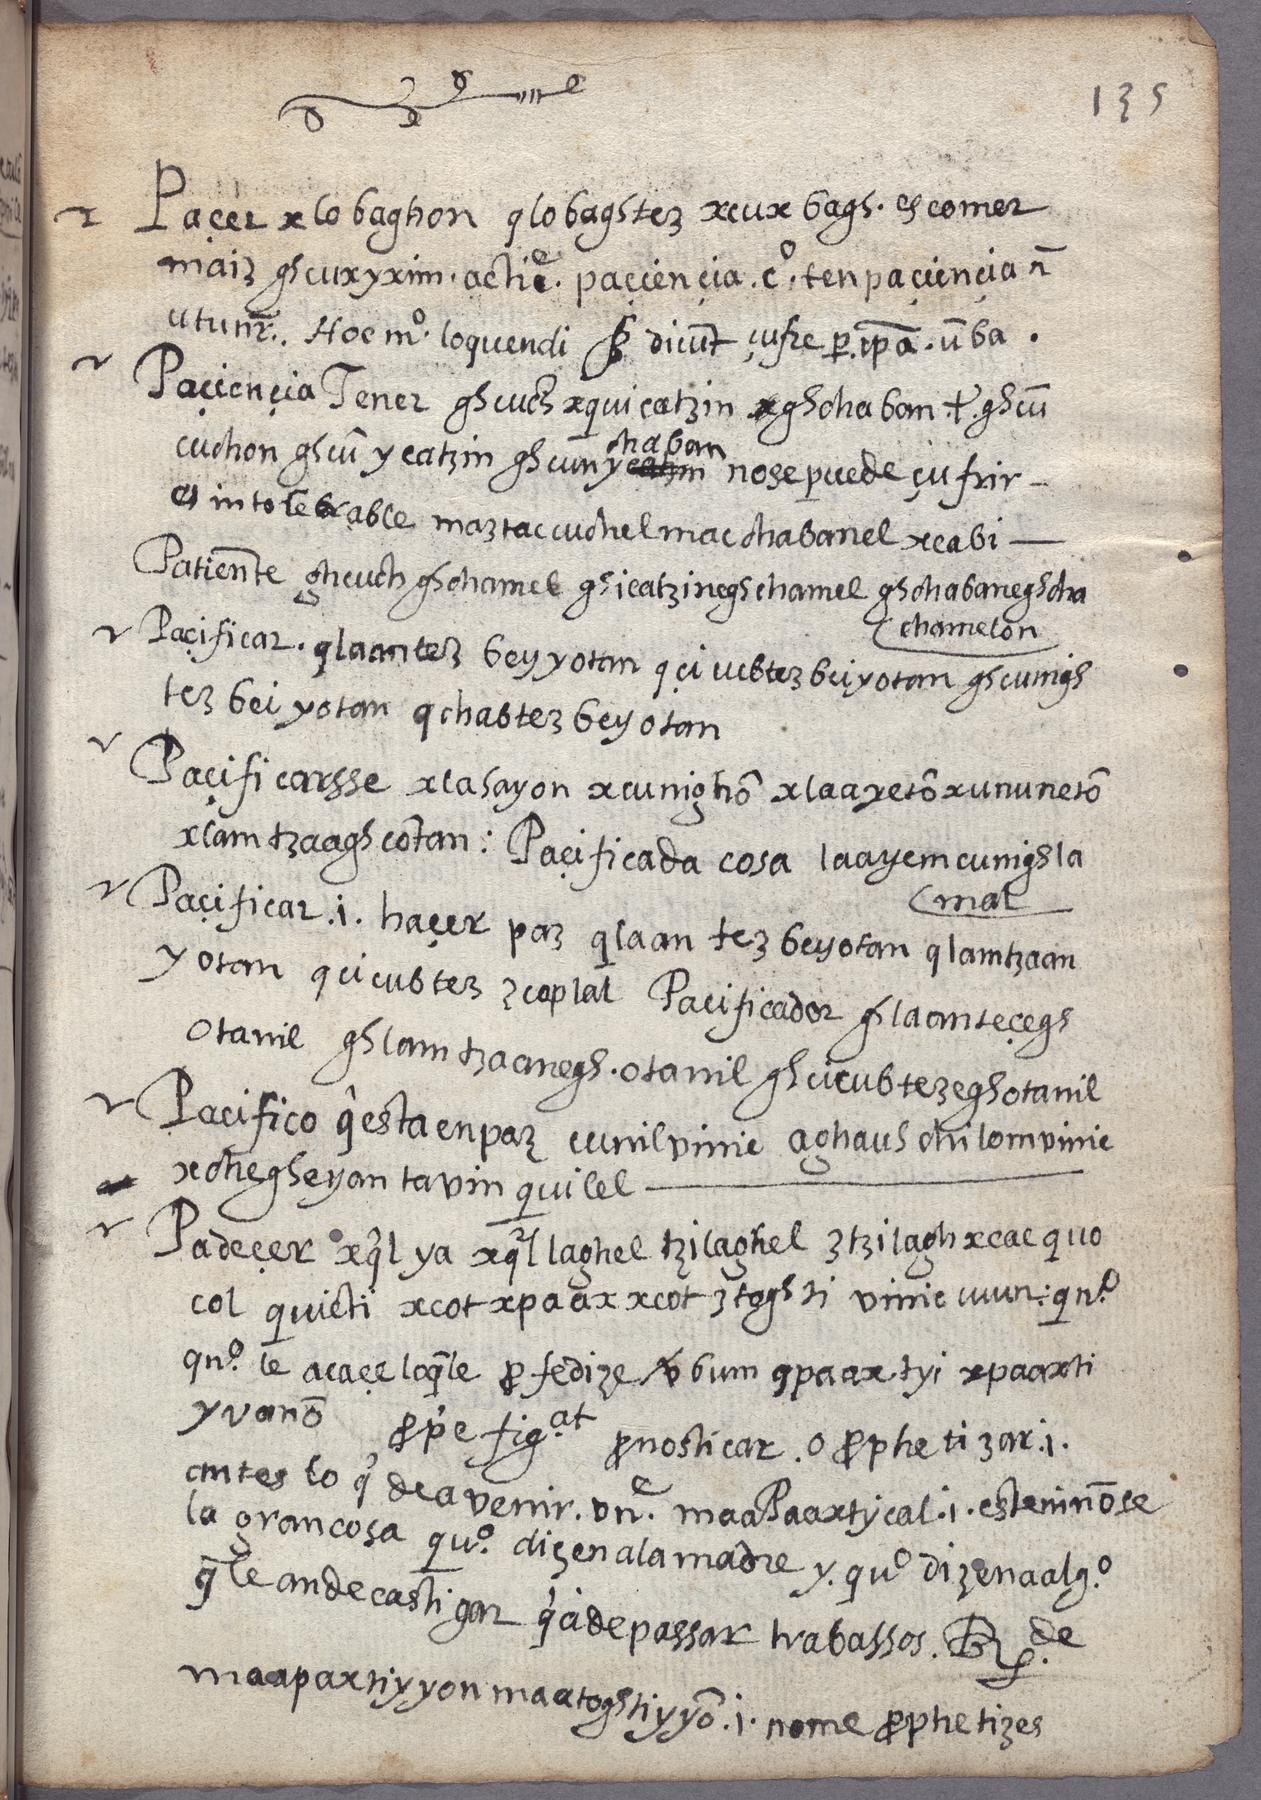 135
Paçer xlobaghon qlobagstez xcux bags. es comer
maiz gh cux yxim. actiē. paçiençia. c̊. ten paçiençia n̄
utunr̄. Hoc m̊. loquendi dicūt çufre per. ip̄a. ūba.
Paçiençia Tener gh cuch xquicatzin xgh chaban t. gh cū
cuchon gh cū ycatzin gh cun y chaban no se puede çufrir
es intolerable maztac cuchel mac chabanel xcabi
Patiēnte gh cuch gh chamel gh icatzinegs chamel gh chabanegh cha
chamelon
Paçificar. qlaantez bey yotan qci cubtez bei yotan gh cunigh
tez bei yotan qchabtez bey otan
Paçificarsse xlasayon xcunighō xlaayetō xununetō
xlamtzaagh cōtan: Paçificada cosa laayem cunighla
mal
Paçificar .i. haçer paz qlaantez bey otan qlamtzaan
yotan qcicubtez zcoplal Pacificador gh laanteçegh
otanil gh lamtzaanegh. otanil gh cicubtezegh otanil
Pacifico q̄ esta en paz cunil vinic aghaus chilom vinic
xchegheyon tavin quilel
Padeçer xq̄l ya xq̄l laghel tzilaghel ztzilagh xcac quo
col quicti xcot xpaax xcot ztogh ti vinic uun: qn̊.
qn̊. le acaeçe loq̄le profedize bum qpaax. tyi xpaaxti
yvanō prop̄e fig.at pronosticar. o prophetizar .i.
antes lo q̄ de a venir. vn̄. maa Paaxtycal .i. es teninōse
la gran cosa qů. dizen a la madre y. qů dizen a alg.o
q̄ le an de castigar q̄ a de passar trabassos. Rp. de
maapaxtiyyon maatoghtiyyō .i. no me prophetizes